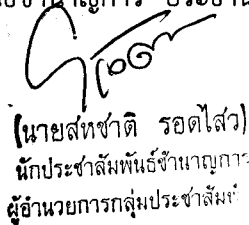 (นายสหชาติ รอดไสว)
นักประชาสัมพันธ์ชำนาญการ
ผู้อำนวยการกลุ่มประชาสัมพันธ์